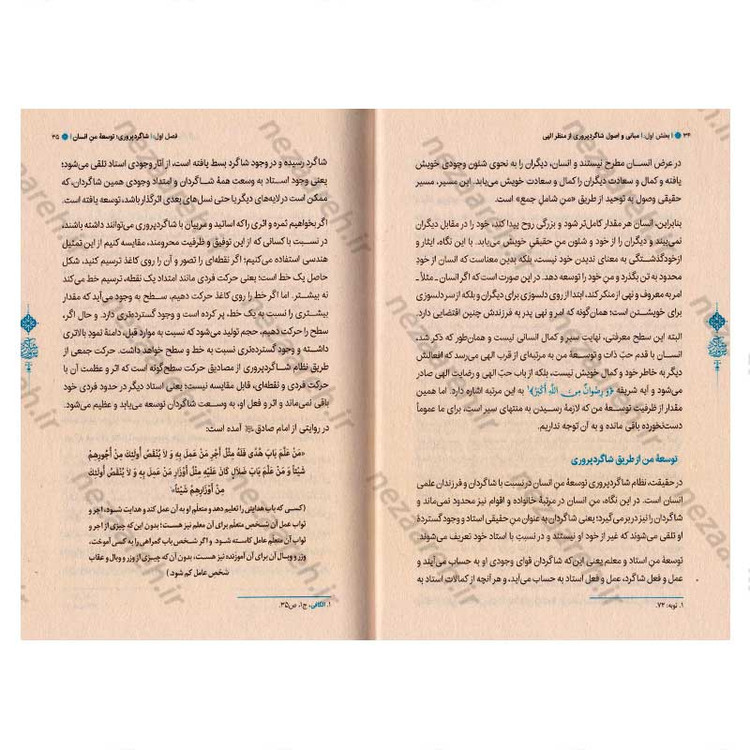 ۳۴ | بخش اول: | مبانی و اصول شاگردپروری از منظر الهی
در عرض انسان مطرح نیستند و انسان، دیگران را به نحوی شئون وجودی خویش
یافته و کمال و سعادت دیگران را کمال و سعادت خویش می‌یابد. این مسیر، مسیر
حقیقی وصول به توحید از طریق «منِ شاملِ جمع» است.
بنابراین، انسان هر مقدار کامل‌تر شود و بزرگی روح پیدا کند، خود را در مقابل دیگران
نمی‌بیند و دیگران را از خود و شئون منِ حقیقیِ خویش می‌یابد. با این نگاه، ایثار و
ازخودگذشتگی به معنای ندیدن خود نیست، بلکه بدین معناست که انسان از خودِ
محدود به تن بگذرد و منِ خود را توسعه دهد. در این صورت است که اگر انسان ـ مثلاً ـ
امر به معروف و نهی از منکر کند، ابتدا از روی دلسوزی برای دیگران و بلکه از سر دلسوزی
برای خویشتن است؛ همان‌گونه که امر و نهی پدر به فرزندش چنین اقتضایی دارد.
البته این سطح معرفتی، نهایت سیر و کمال انسانی نیست و همان‌طور که ذکر شد،
انسان با قدم حبّ ذات و توسعهٔ من به مرتبه‌ای از قرب الهی می‌رسد که افعالش
دیگر به خاطر خود و کمال خویش نیست، بلکه از باب حبّ الهی و رضایت الهی صادر
می‌شود و آیه شریفه ﴿وَ رِضْوانٌ مِنَ اللَّهِ أَکْبَرُ﴾۱ به این مرتبه اشاره دارد. اما همین
مقدار از ظرفیت توسعهٔ من که لازمهٔ رسیدن به منتهای سیر است، برای ما عموماً
دست‌نخورده باقی مانده و به آن توجه نداریم.
توسعهٔ من از طریق شاگردپروری
در حقیقت، نظام شاگردپروری توسعهٔ من انسان در نسبت با شاگردان و فرزندان علمی
انسان است. در این نگاه، منِ انسان در مرتبهٔ خانواده و اقوام نیز محدود نمی‌ماند و
شاگردان را نیز در بر می‌گیرد؛ یعنی شاگردان به عنوان منِ حقیقی استاد و وجود گستردهٔ
او تلقی می‌شوند که غیر از خود او نیستند و در نسبت با استاد خود تعریف می‌شوند.
توسعهٔ منِ استاد و معلم یعنی این‌که شاگردان قوای وجودی او به حساب می‌آیند و
عمل و فعل شاگرد، عمل و فعل استاد به حساب می‌آید، و هر آنچه از کمالات استاد به
۱. توبه: ۷۲.
فصل اول: | شاگردپروری؛ توسعهٔ منِ انسان | ۳۵
شاگرد رسیده و در وجود شاگرد بسط یافته است، از آثار وجودی استاد تلقی می‌شود؛
یعنی وجود استاد به وسعت همهٔ شاگردان و امتداد وجودی همین شاگردان، که
ممکن است در لایه‌های دیگر یا حتی نسل‌های بعدی اثرگذار باشد، توسعه یافته است.
اگر بخواهیم ثمره و اثری را که اساتید و مربیان با شاگردپروری می‌توانند داشته باشند،
در نسبت با کسانی که از این توفیق و ظرفیت محرومند، مقایسه کنیم از این تمثیل
هندسی استفاده می‌کنیم؛ اگر نقطه‌ای را تصور و آن را روی کاغذ ترسیم کنید، شکل
حاصل یک خط است؛ یعنی حرکت فردی مانند امتداد یک نقطه، ترسیم خط می‌کند
نه بیشتر. اما اگر خط را روی کاغذ حرکت دهیم، سطح به وجود می‌آید که مقدار
بیشتری را نسبت به یک خط، پر کرده است و وجود گسترده‌تری دارد. و حال اگر،
سطح را حرکت دهیم، حجم تولید می‌شود که نسبت به موارد قبل، دامنهٔ نمودِ بالاتری
داشته و وجود گسترده‌تری نسبت به خط و سطح خواهد داشت. حرکت جمعی از
طریق نظام شاگردپروری از مصادیق حرکت سطح‌گونه است که اثر و عظمت آن با
حرکت فردی و نقطه‌ای، قابل مقایسه نیست؛ یعنی استاد دیگر در حدود فردی خود
باقی نمی‌ماند و اثر و فعل او، به وسعت شاگردان توسعه می‌یابد و عظیم می‌شود.
در روایتی از امام صادق آمده است:
«مَنْ عَلَّمَ بَابَ هُدًی فَلَهُ مِثْلُ أَجْرِ مَنْ عَمِلَ بِهِ وَ لَا یُنْقَصُ أُولَئِکَ مِنْ أُجُورِهِمْ
شَیْئاً وَ مَنْ عَلَّمَ بَابَ ضَلَالٍ کَانَ عَلَیْهِ مِثْلُ أَوْزَارِ مَنْ عَمِلَ بِهِ وَ لَا یُنْقَصُ أُولَئِکَ
مِنْ أَوْزَارِهِمْ شَیْئاً»۱
(کسی که باب هدایتی را تعلیم دهد و متعلم او به آن عمل کند و هدایت شود، اجر و
ثواب عمل آن شخص متعلم برای آن معلم نیز هست؛ بدون این‌که چیزی از اجر و
ثواب آن متعلم عامل کاسته شود. و اگر شخص باب گمراهی را به کسی آموخت،
وزر و وبال آن برای آن آموزنده نیز هست؛ بدون آن که چیزی از وزر و وبال و عقاب
شخص عامل کم شود.)
۱. الکافی، ج۱، ص۳۵.
nezaareh.ir